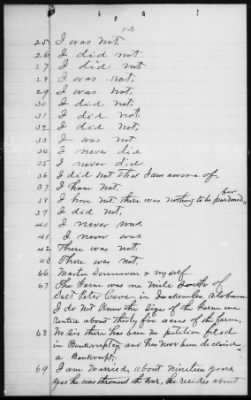 25 I was not.
26 I did not
27 I did not
28 I was not.
29 I was not.
30 I did not.
31 I did not
32 I did not,
33 I was not
34 I never did
35 I never did
36 I did not that I am aware of.
37 I have not.
38 I have not. there was nothing to be pardoned for
39 I did not.
40 I never was
41 I never was
42 There was not.
43 There was not.
66 Martin & myself.
67 The Farm was one mile South of
Salt Peter Cave in Alabama
I do not know the size of the Farm we
about thirty five acres of the farm.
68 No Sir there has been no petition filed
in Bankruptcy and has never been declared
a Bankrupt.
69 I am Married, about Nineteen years
ago he was throughout the War, He resides about